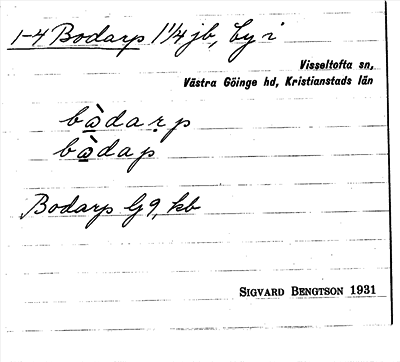 1-4 Bodarp 1 1/4 jb, by i
Visseltofta sn,
Västra Göinge hd, Kristianstads län
bàdarp
bàdap
Bodarp G9, kb
SIGVARD BENGTSON 1931